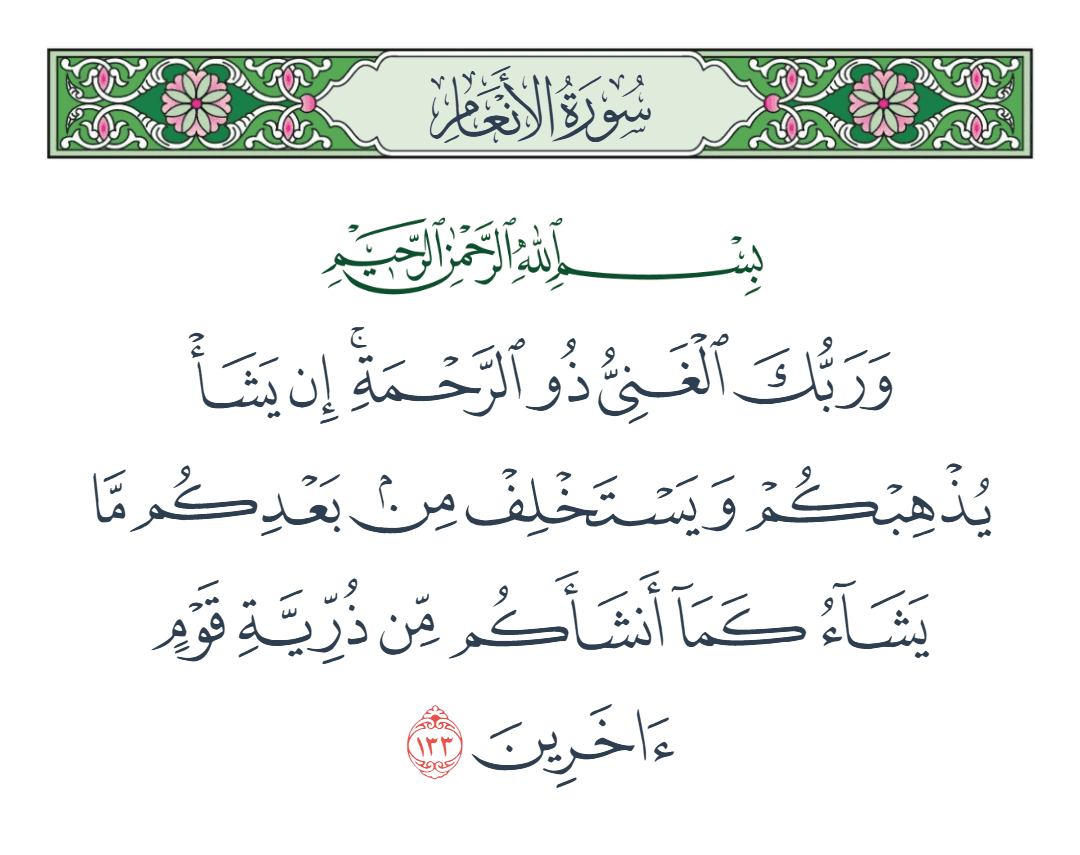 سُورَةُ الأَنْعَامِ
بِسْمِ ٱللَّهِ ٱلرَّحْمَٰنِ ٱلرَّحِيمِ
وَرَبُّكَ ٱلْغَنِىُّ ذُو ٱلرَّحْمَةِ ۚ إِن يَشَأْ
يُذْهِبْكُمْ وَيَسْتَخْلِفْ مِنۢ بَعْدِكُم مَّا
يَشَآءُ كَمَآ أَنشَأَكُم مِّن ذُرِّيَّةِ قَوْمٍ
ءَاخَرِينَ ١٣٣